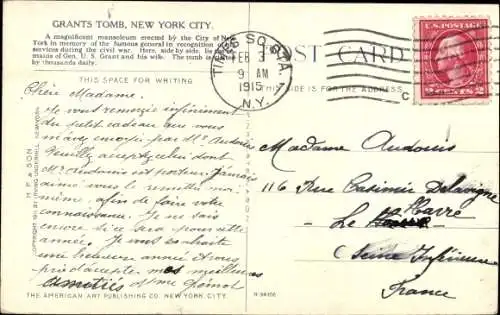 GRANTS TOMB, NEW YORK CITY.
A magnificent mausoleum erected by the City of New
York in memory of the famous general in recognition of
services during the civil war. Here, side by side, lie
made of Gen. U. S. Grant and his wife. The tomb is
by thousands daily.
THIS SPACE FOR WRITING
Chère Madame.
Je vous remercie infiniment
du petit cadeau que vous
m'avez envoyé par Mr. Audouis
Veuillez accepter celui dont
Mr. Audouis est porteur. J'aurais
aimé vous le remettre moi
même, afin de faire votre
connaissance. Je ne sais
encore si ce sera pour cette
année. Je vous souhaite
une heureuse année et vous
prie d'accepter mes meilleures
amitiés
THE AMERICAN ART PUBLISHING CO. NEW YORK CITY.
H. F. & SON
COPYRIGHT 1911 BY IRVING UNDERHILL, NEW YORK
TIMES SQ. STA.
FEB 3
9 AM
1915
N.Y.
POST CARD
THIS SIDE IS FOR THE ADDRESS
U.S. POSTAGE
2 CENTS 2
Madame Audouis
116 Rue Casimir Delavigne
Le Havre
(Seine Inférieure
France